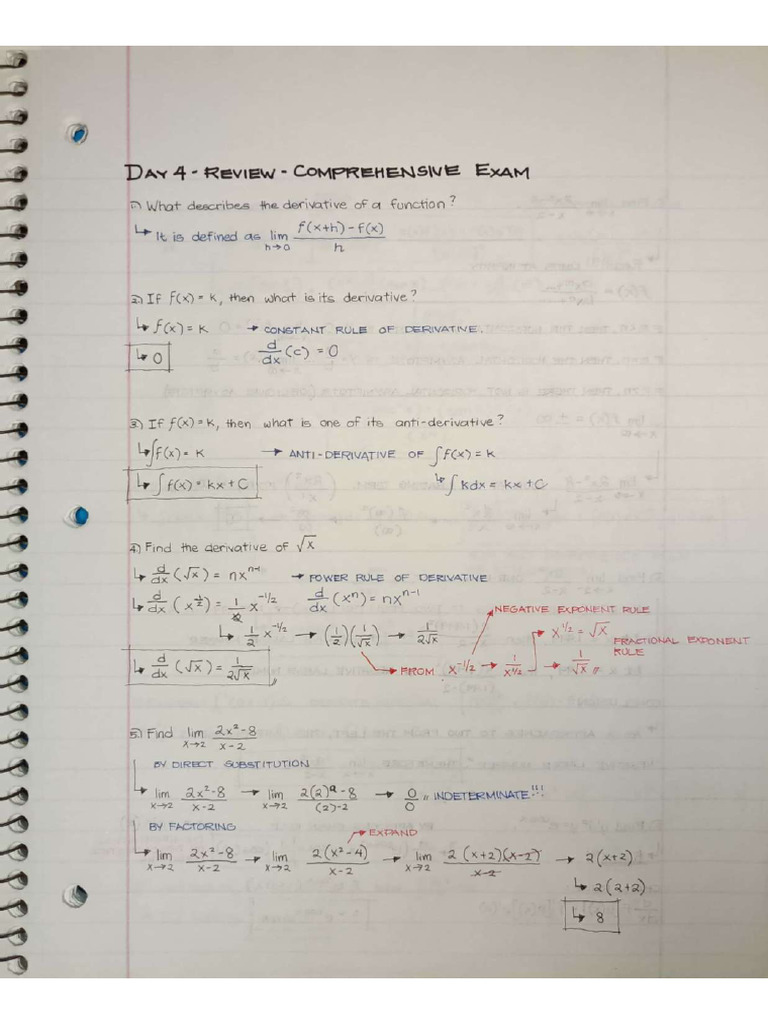 DAY 4 - REVIEW - COMPREHENSIVE EXAM
1) What describes the derivative of a function?
↳ It is defined as lim h→0 f(x+h)-f(x) / h
2) If f(x) = k, then what is its derivative?
↳ f(x) = k → CONSTANT RULE OF DERIVATIVE.
↳ 0 d/dx (c) = 0
3) If f(x) = k, then what is one of its anti-derivative?
↳ ∫f(x) = k → ANTI-DERIVATIVE OF ∫f(x) = k
↳ ∫f(x) = kx + C ↳ ∫kdx = kx + C
4) Find the derivative of √x
↳ d/dx (√x) = nx^(n-1) → POWER RULE OF DERIVATIVE
↳ d/dx (x^(1/2)) = 1/2 x^(-1/2) d/dx (x^n) = nx^(n-1)
NEGATIVE EXPONENT RULE
↳ 1/2 x^(-1/2) → (1/2)(1/√x) → 1/(2√x)
x^(1/2) = √x FRACTIONAL EXPONENT RULE
↳ d/dx (√x) = 1/(2√x) //
→ FROM x^(-1/2) → 1/x^(1/2) → 1/√x //
5) Find lim x→2 2x²-8 / x-2
BY DIRECT SUBSTITUTION
↳ lim x→2 2x²-8 / x-2 → lim x→2 2(2)²-8 / (2)-2 → 0/0 // INDETERMINATE!!!
BY FACTORING → EXPAND
↳ lim x→2 2x²-8 / x-2 → lim x→2 2(x²-4) / x-2 → lim x→2 2(x+2)(x-2) / x-2 → 2(x+2)
↳ 2(2+2)
↳ 8